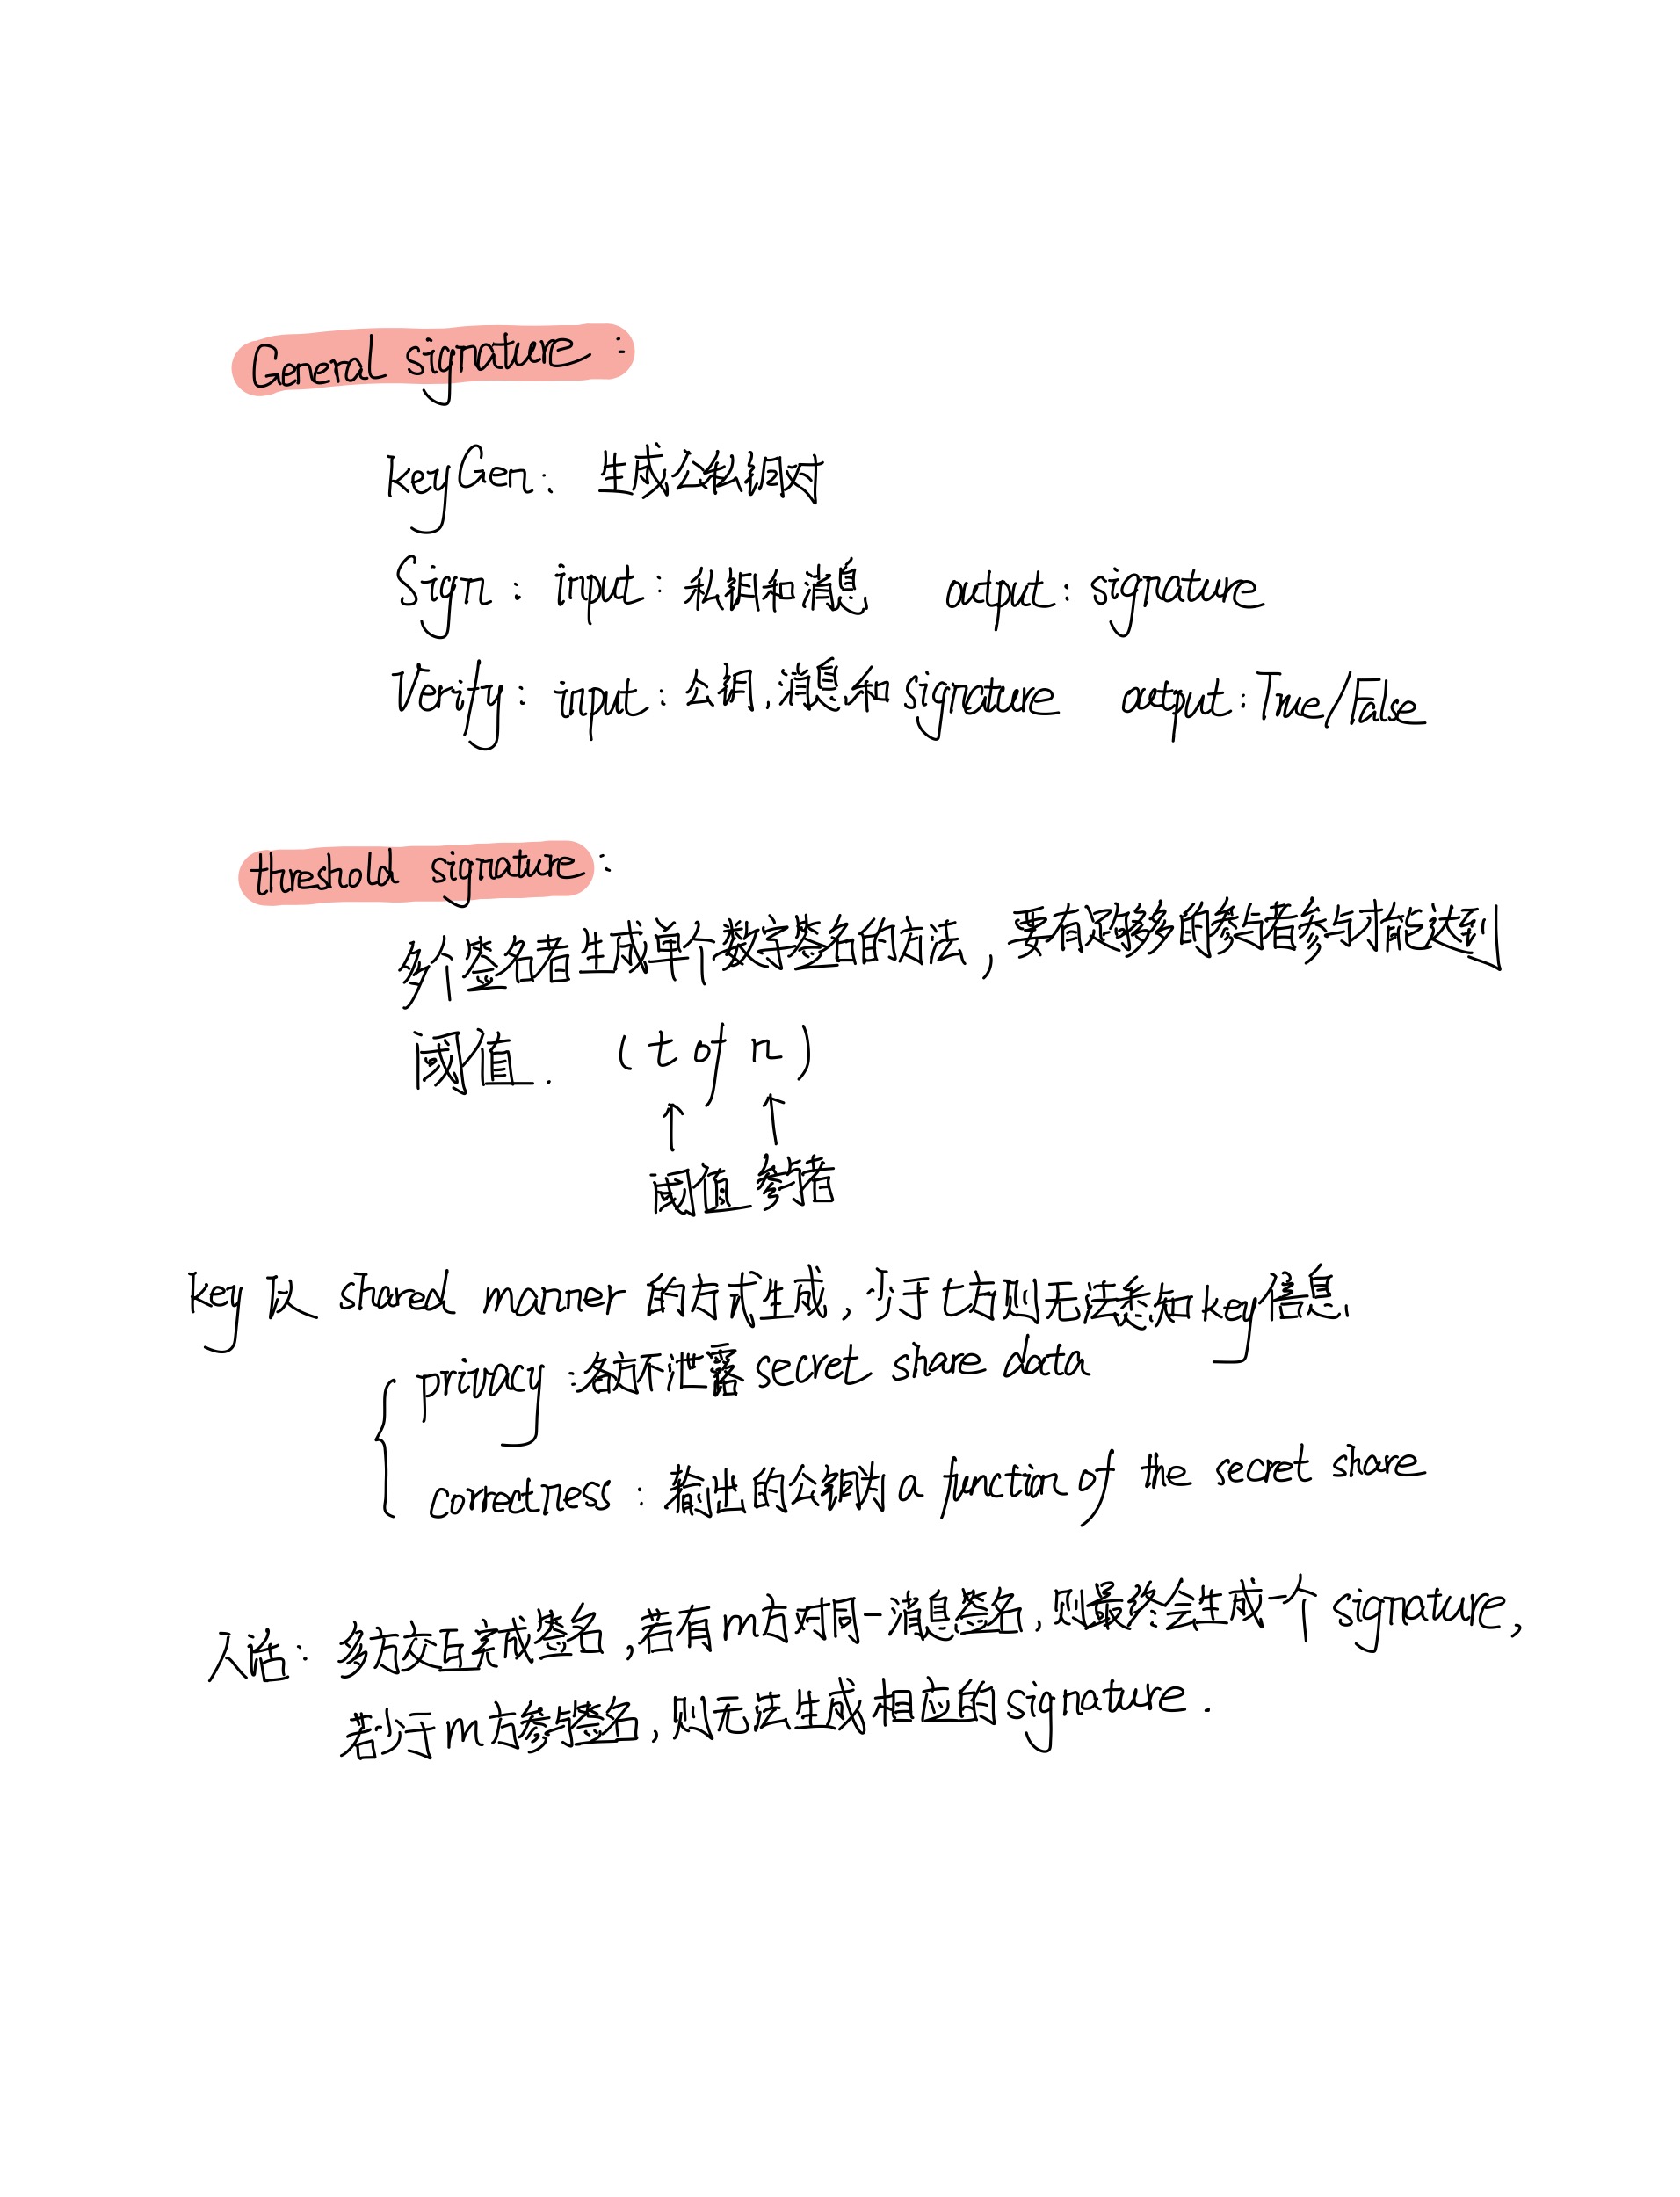 General signature:
KeyGen: 生成公私钥对
Sign: input: 私钥和消息 output: signature
Verify: input: 公钥,消息和signature output: True/False
threshold signature:
多个签名者生成单个数字签名的方法,要有足够多的参与者参与才能达到
阈值. (t of n)
↑ ↑
阈值 参与者
key 以 shared manner 的方式生成,少于t方则无法悉知key信息,
privacy:各方不泄露secret share data
correctness:输出的公钥为 a function of the secret share
人话:多方交互完成签名,若有m方对同一消息签名,则最终会生成一个 signature,
若少于m方参与签名,则无法生成相应的signature.